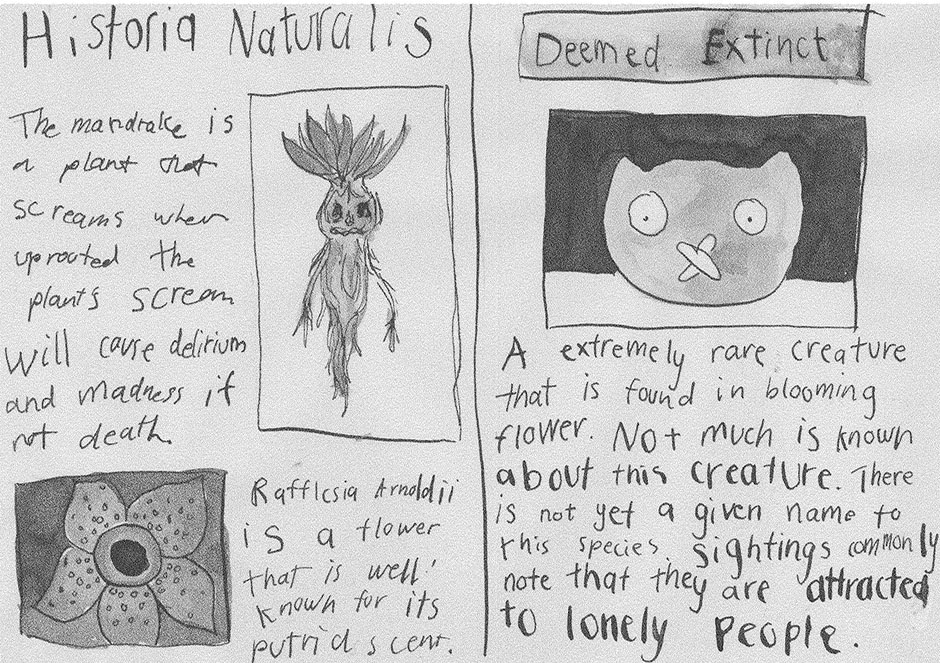 Historia Naturalis
The mandrake is
a plant that
screams when
uprooted the
plant's scream
will cause delirium
and madness if
not death.
Rafflesia Arnoldii
is a flower
that is well
known for its
putrid scent.
Deemed Extinct
A extremely rare creature
that is found in blooming
flower. Not much is known
about this creature. There
is not yet a given name to
this species. sightings commonly
note that they are attracted
to lonely people.